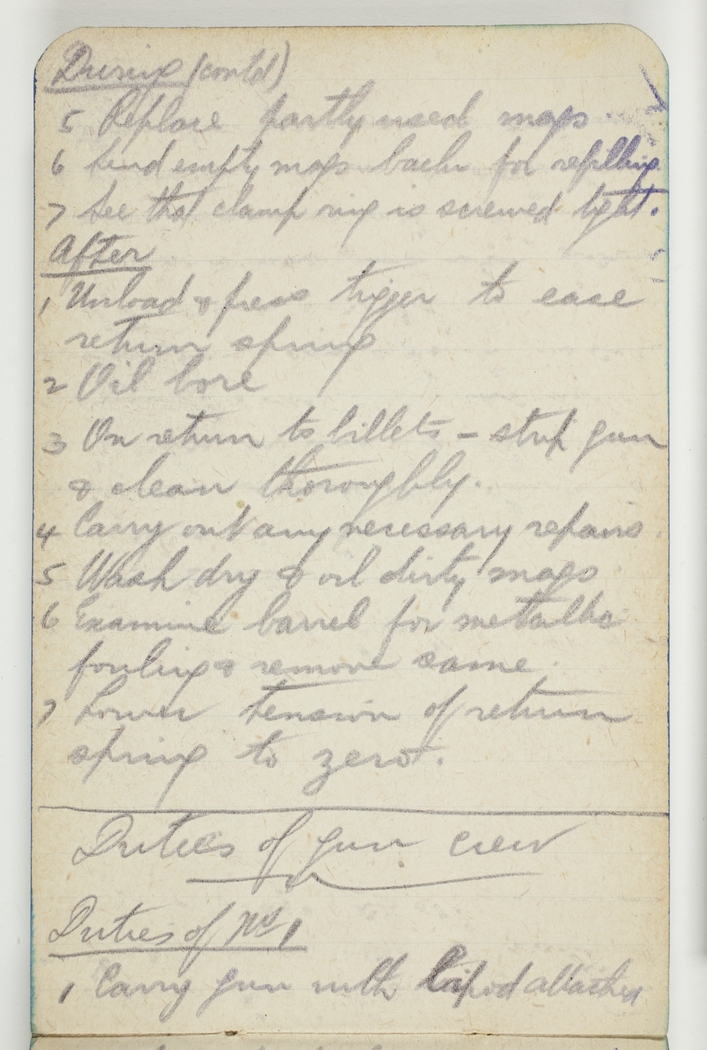 During (contd)
5 Replace partly used mags
6 Send empty mags back for refilling.
7 See that clamp ring is screwed tight.
After
1 Unload & press trigger to ease
return spring
2 Oil bore
3 On return to billets - strip gun
& clean thoroughly.
4 Carry out any necessary repairs.
5 Wash dry & oil dirty mags
6 Examine barrel for metallic
fouling & remove same.
7 Lower tension of return
spring to zero.
Duties of gun crew
Duties of No 1
1 Carry gun with bipod attached